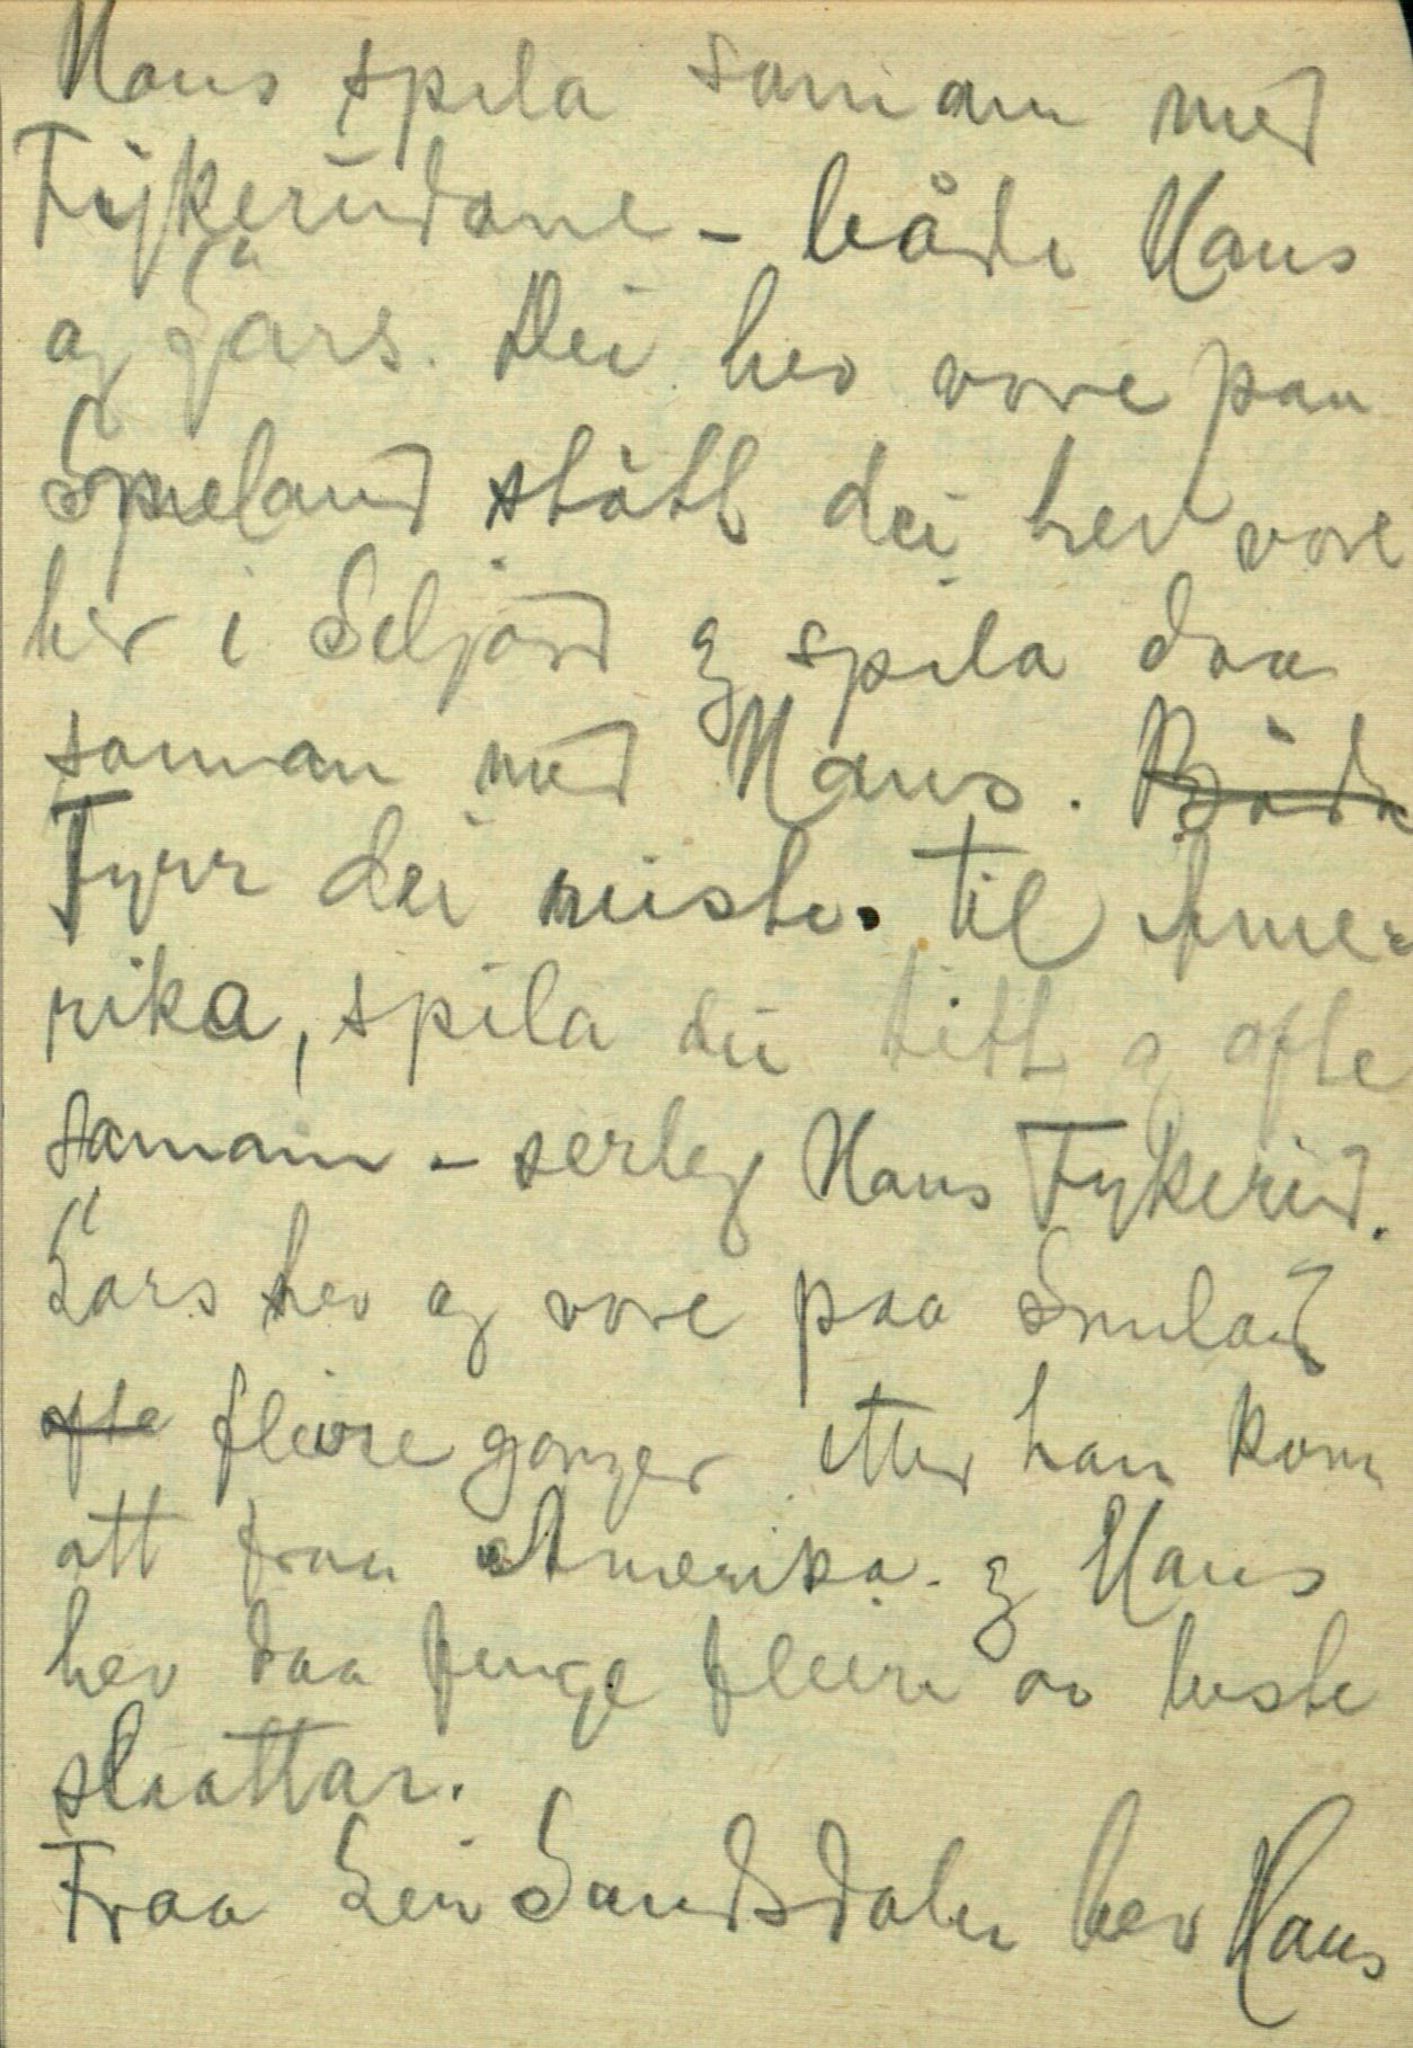 Hans spila saman med
Fykerudane - både Hans
og Lars. Dei hev vore paa
Smeland støtt dei hev vore
her i Seljord og spila daa
saman med Hans. Båda
Fyrr dei reiste til Ame-
rika, spila dei titt og ofte
saman - serleg Hans Fykerud.
Lars hev og vore paa Smeland
ofte fleire gonger etter han kom
att fraa Amerika og Hans
hev daa fenge fleire av beste
slaattar.
Fraa Leiv Sandsdalen hev Hans